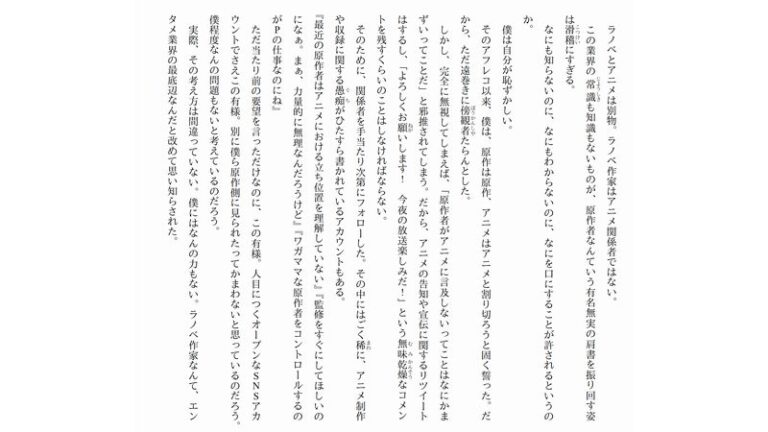 ラノベとアニメは別物。ラノベ作家はアニメ関係者ではない。
この業界の常識も知識もないものが、原作者なんていう有名無実の肩書を振り回す姿
は滑稽にすぎる。
なにも知らないのに、なにもわからないのに、なにを口にすることが許されるというの
か。
僕は自分が恥ずかしい。
そのアフレコ以来、僕は、原作は原作、アニメはアニメと割り切ろうと固く誓った。だ
から、ただ遠巻きに傍観者たらんとした。
しかし、完全に無視してしまえば、「原作者がアニメに言及しないってことはなにかま
ずいってことだ」と邪推されてしまう。だから、アニメの告知や宣伝に関するリツイート
はするし、「よろしくお願いします！　今夜の放送楽しみだ！」という無味乾燥なコメン
トを残すくらいのことはしなければならない。
そのために、関係者を手当たり次第にフォローした。その中にはごく稀に、アニメ制作
や収録に関する愚痴がひたすら書かれているアカウントもある。
『最近の原作者はアニメにおける立ち位置を理解していない』『監修をすぐにしてほしいの
になぁ。まぁ、力量的に無理なんだろうけど』『ワガママな原作者をコントロールするの
がPの仕事なのにね』
ただ当たり前の要望を言っただけなのに、この有様。人目につくオープンなSNSアカ
ウントでさえこの有様。別に僕ら原作側に見られたってかまわないと思っているのだろう。
僕程度なんの問題もないと考えているのだろう。
実際、その考え方は間違っていない。僕にはなんの力もない。ラノベ作家なんて、エン
タメ業界の最底辺なんだと改めて思い知らされた。